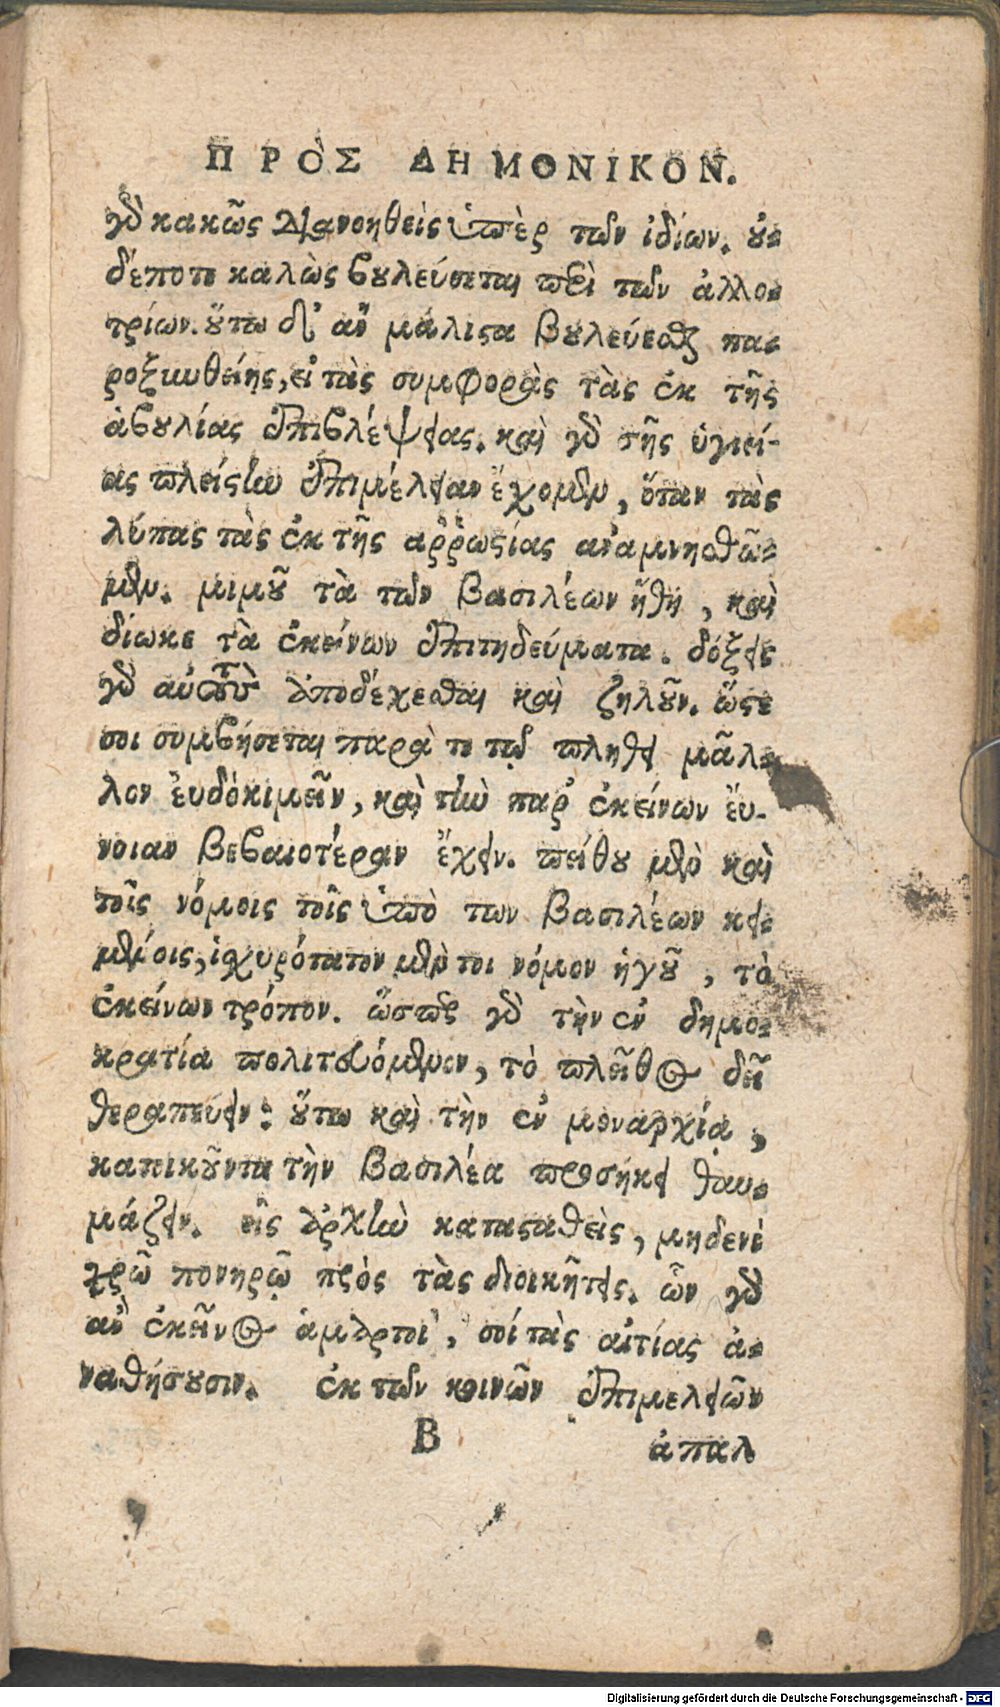 ΠΡΟΣ ΔΗΜΟΝΙΚΟΝ.
γὰρ κακῶς διανοηθεὶς ὑπὲρ τῶν ἰδίων. οὐ-
δέποτε καλὼς βουλεύσεται περὶ τῶν ἀλλο-
τρίων. οὕτω δ' ἂν μάλιστα βουλεύεσθαι πα-
ροξυνθείης, εἰ τὰς συμφορὰς τὰς ἐκ τῆς
ἀβουλίας ἐπιβλέψειας. καὶ γὰρ τῆς ὑγιεί-
ας πλείστην ἐπιμέλειαν ἔχομεν, ὅταν τὰς
λύπας τὰς ἐκ τῆς ἀῤῥωστίας ἀναμνησθῶ-
μεν. μιμοῦ τὰ τῶν βασιλέων ἤθη, καὶ
δίωκε τὰ ἐκείνων ἐπιτηδεύματα. δόξεις
γὰρ αὐτοὺς ἀποδέχεσθαι καὶ ζηλοῦν. ὥστε
σοι συμβήσεται παρά τε τῷ πλήθει μᾶλ-
λον ἐυδόκιμεῖν, καὶ τὴν παρ' ἐκείνων ἔυ-
νοιαν βεβαιοτέραν ἔχειν. πείθου μὲν καὶ
τοῖς νόμοις τοῖς ὑπὸ των βασιλέων κει-
μένοις, ἰσχυρότατον μέν τοι νόμον ἡγοῦ, τὸ
ἐκείνων τρόπον. ὥσπερ γὰρ τὴν ἐν δημο-
κρατία πολιτευόμενον, τὸ πλεῖθος δεῖ
θεραπεύειν: οὕτω καὶ τὴν ἐν μοναρχίᾳ,
κατοικοῦντα τὴν βασιλέα προσήκει θαυ-
μάζειν. εἰς ἀρχὴν κατασταθεὶς, μηδενὶ
χρῶ πονηρῷ πρὸς τὰς διοικῆτεις. ὧν γὰρ
ἂν ἐκεῖνος ἁμάρτοι, σοί τὰς αἰτίας ἀ-
ναθήσουσιν. ἐκ τῶν κοινῶν ἐπιμελειῶν
Β ἀπαλ
Digitalisierung gefördert durch die Deutsche Forschungsgemeinschaft - DFG